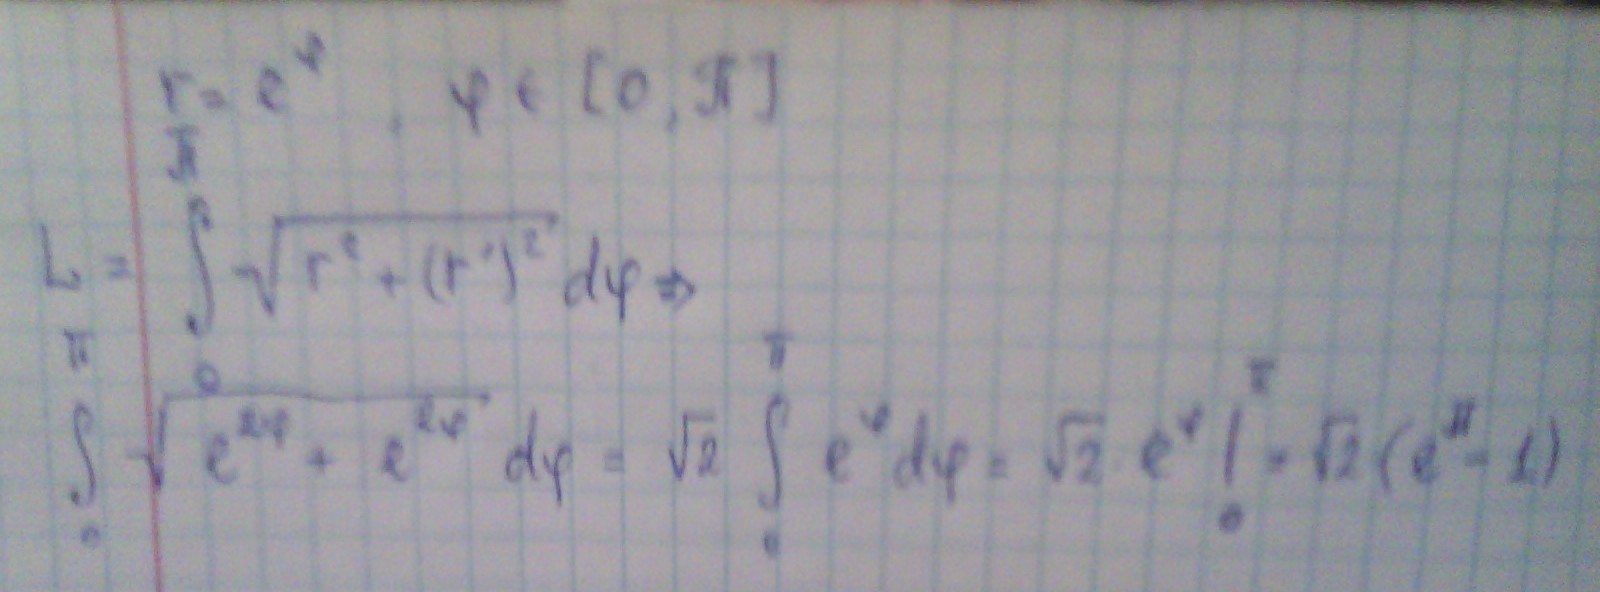 r = e^φ , φ ∈ [0, π]
L = ∫_0^π √(r² + (r')²) dφ ⇒
∫_0^π √(e^{2φ} + e^{2φ}) dφ = √2 ∫_0^π e^φ dφ = √2 e^φ |_0^π = √2 (e^π - 1)